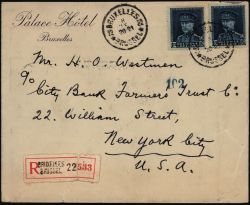 Palace Hôtel
Bruxelles
BRUXELLES
BRUSSEL
Mr. H. O. Wortman
c/o City Bank Farmers Trust Co.
22, William Street,
New York City
U. S. A.
102
R
BRUXELLES
BRUSSEL
22